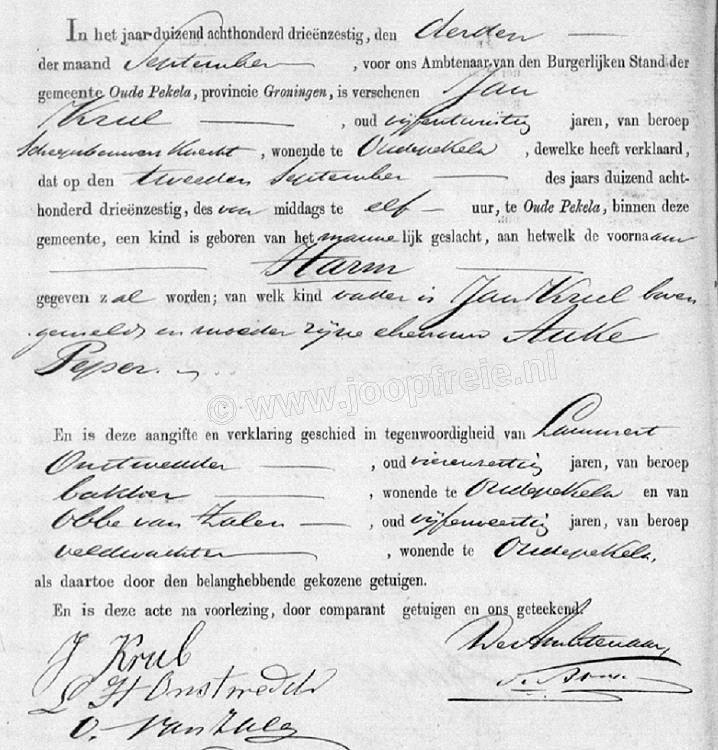 In het jaar duizend achthonderd drieënzestig, den derden
der maand September, voor ons Ambtenaar van den Burgerlijken Stand der
gemeente Oude Pekela, provincie Groningen, is verschenen Jan
Krul, oud vijfentwintig jaren, van beroep
Scheepsbouwers knecht, wonende te Oudepekela, dewelke heeft verklaard,
dat op den tweeden September des jaars duizend acht-
honderd drieënzestig, des voor middags te elf uur, te Oude Pekela, binnen deze
gemeente, een kind is geboren van het mannelijk geslacht, aan hetwelk de voornaam
Harm
gegeven zal worden; van welk kind vader is Jan Krul boven
gemeld, en moeder zijne ehevrouw Anke
Peper.
© www.joopfreie.nl
En is deze aangifte en verklaring geschied in tegenwoordigheid van Lammert
Onstwedder, oud vierenveertig jaren, van beroep
bakker, wonende te Oudepekela en van
Obbe van Zalen, oud vijfenveertig jaren, van beroep
veldwachter, wonende te Oudepekela,
als daartoe door den belanghebbende gekozene getuigen.
En is deze acte na voorlezing, door comparant getuigen en ons geteekend.
De Ambtenaar,
J Krul
L H Onstwedder
O. van Zalen